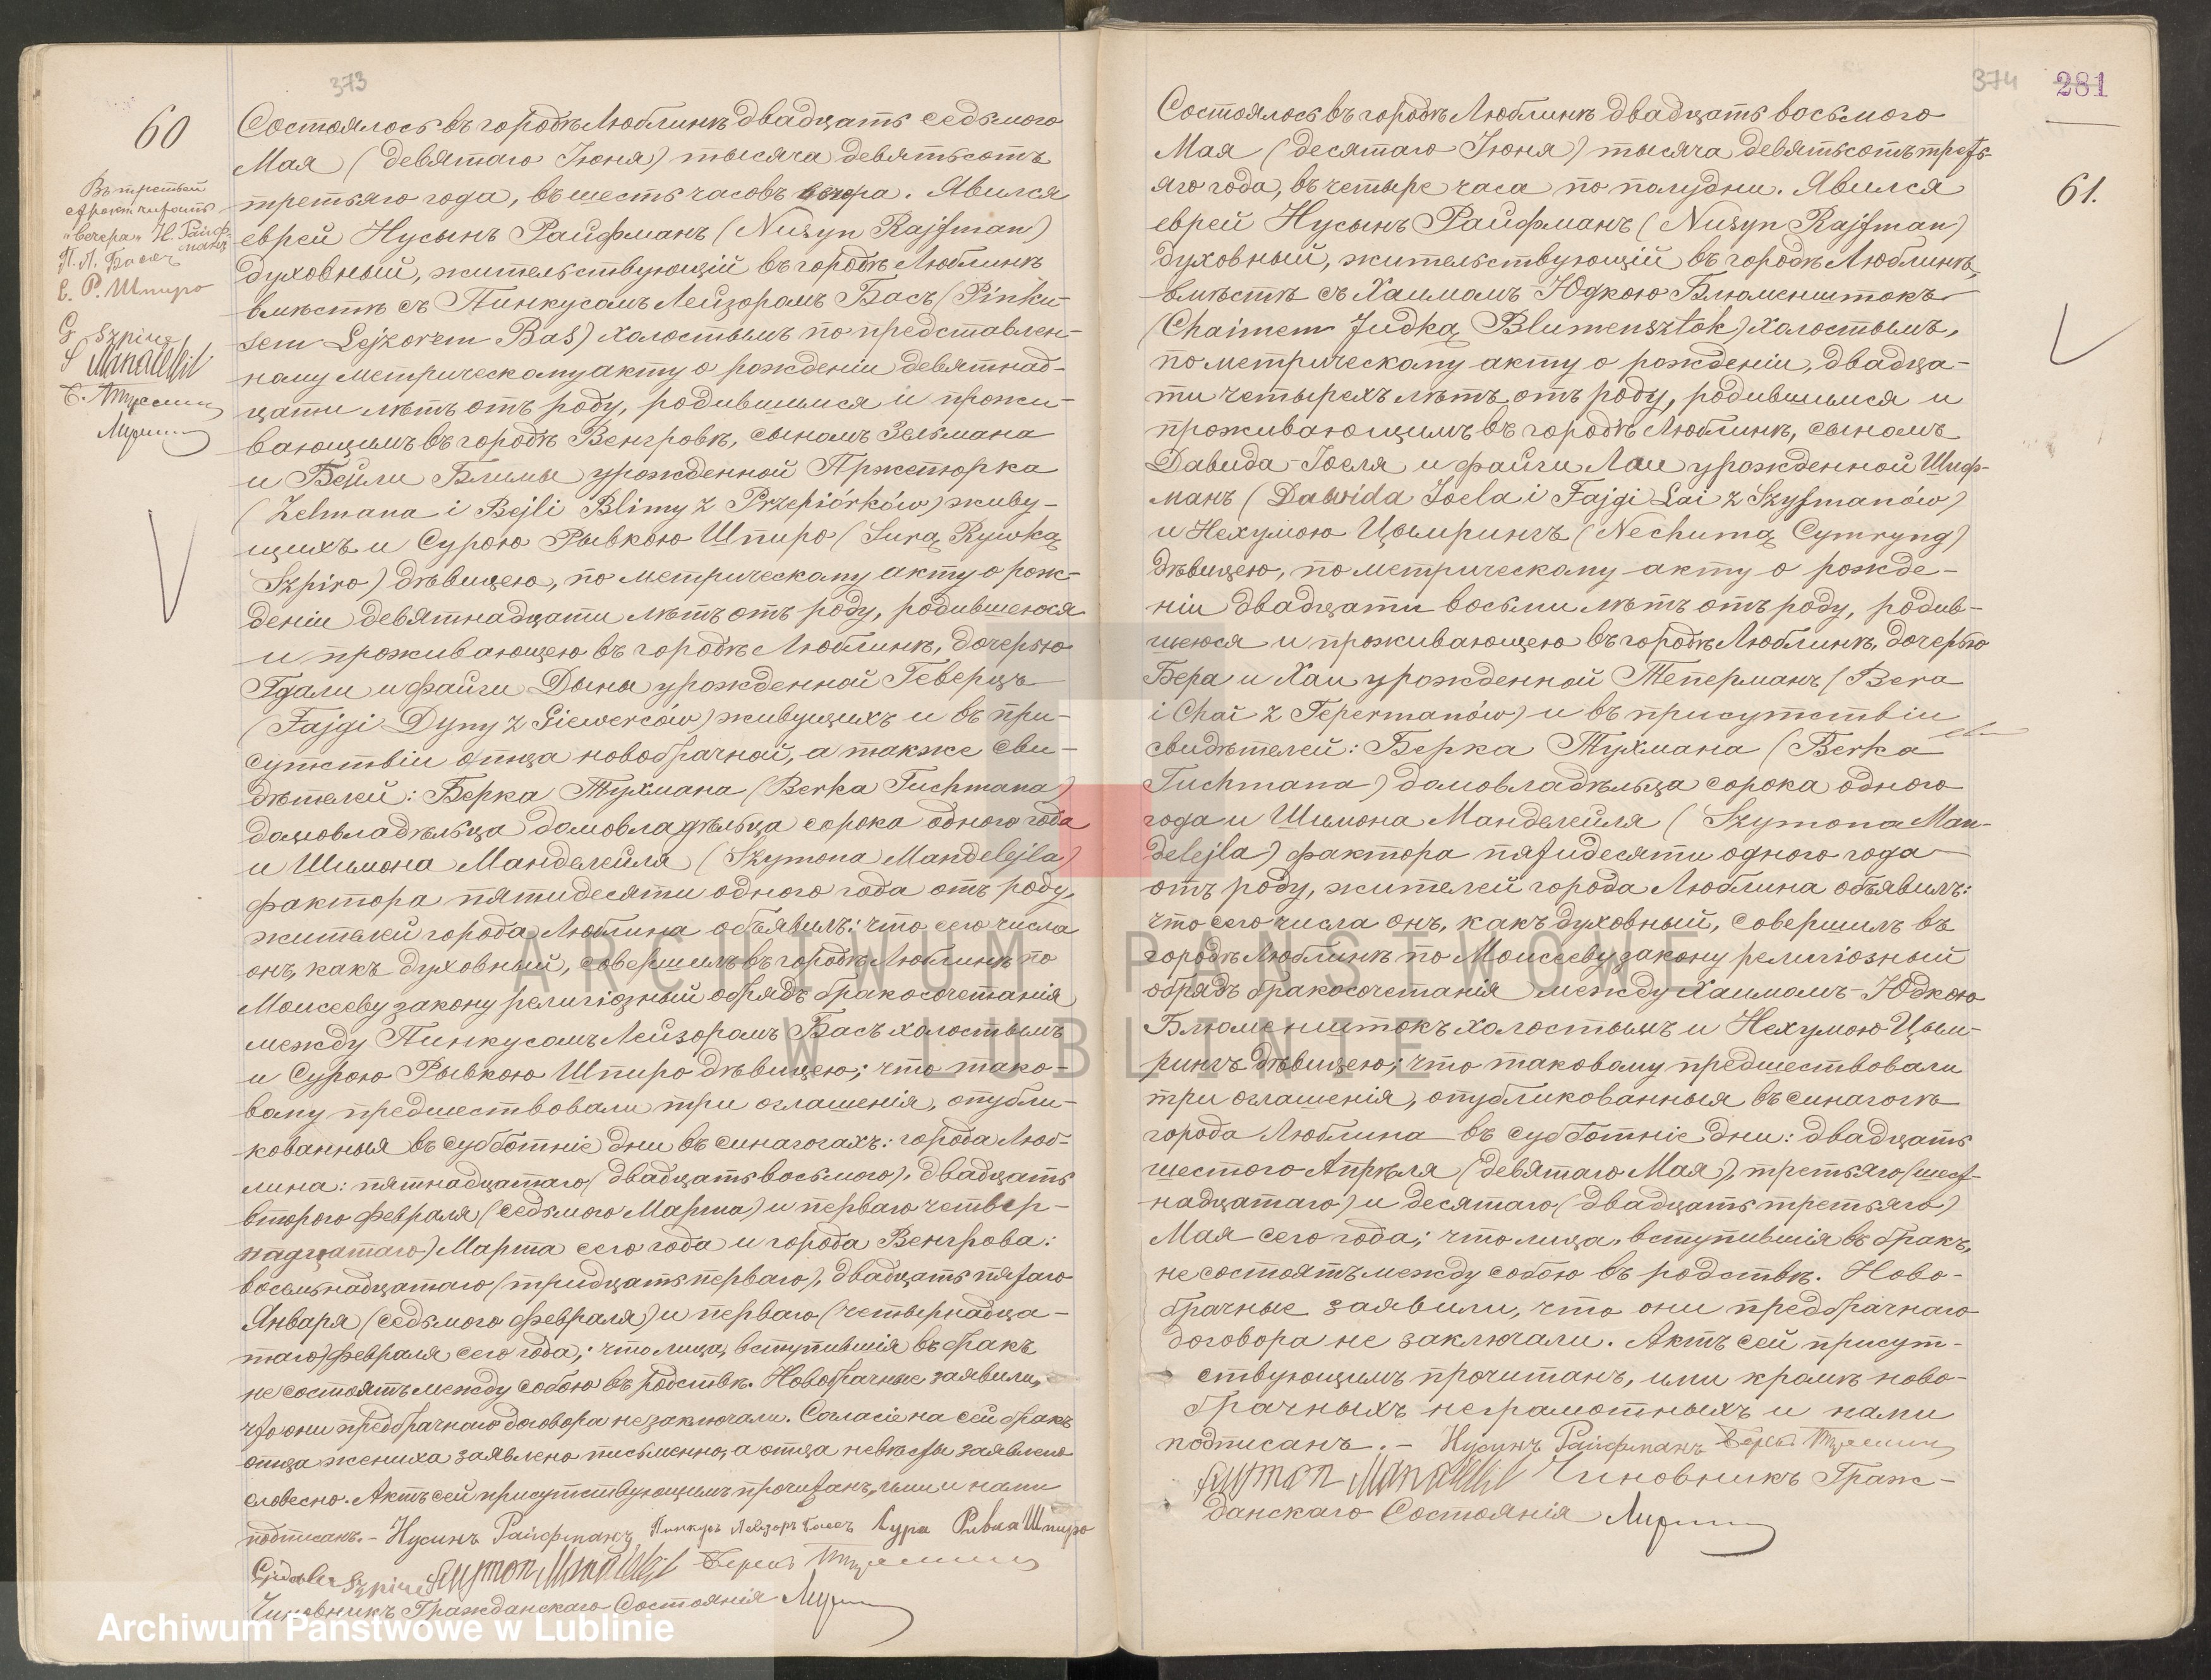 373
60
Состоялось въ городѣ Люблинѣ двадцать седьмого
Мая (девятаго Іюня) тысяча девятьсотъ
третьяго года, въ шесть часовъ вечера. Явился
еврей Нусынъ Райфманъ (Nusyn Rajfman)
духовный, жительствующій въ городѣ Люблинѣ
вмѣстѣ съ Пинкусомъ Лейзоромъ Басъ (Pinku-
sem Lejzorem Bas) холостымъ по представлен-
ному метрическому акту о рожденіи девятнад-
цати лѣтъ отъ роду, родившимся и прожи-
вающимъ въ городѣ Венгровѣ, сыномъ Зельмана
и Бейли Блимы урожденной Пржепюрка
(Zelmana i Bejli Blimy z Przepiórków) живу-
щихъ и Сурою Рывкою Шпиро (Surą Rywką
Szpiro) дѣвицею, по метрическому акту о рож-
деніи девятнадцати лѣтъ отъ роду, родившеюся
и проживающею въ городѣ Люблинѣ, дочерью
Гдали и Файги Дыны урожденной Геверцъ
(Fajgi Dyny z Giewerców) живущихъ и въ при-
сутствіи отца новобрачной, а также сви-
дѣтелей: Берка Тухмана (Berka Tuchmana)
домовладѣльца домовладѣльца сорока одного года
и Шимона Манделейля (Szymona Mandelejla)
фактора пятидесяти одного года отъ роду,
жителей города Люблина объявилъ: что сего числа
онъ, какъ духовный, совершилъ въ городѣ Люблинѣ по
Моисееву закону религіозный обрядъ бракосочетанія
между Пинкусомъ Лейзоромъ Басъ холостымъ
и Сурою Рывкою Шпиро дѣвицею; что тако-
вому предшествовали три оглашенія, опубли-
кованныя въ субботніе дни въ синагогахъ: города Люб-
лина: пятнадцатаго (двадцать восьмого), двадцать
второго Февраля (седьмого Марта) и перваго четвер-
надцатаго) Марта сего года и города Венгрова:
восемнадцатаго (тридцать перваго), двадцать пятаго
Января (седьмого Февраля) и перваго (четырнадца-
таго) Февраля сего года; что лица, вступившія въ бракъ
не состоятъ между собою въ родствѣ. Новобрачные заявили,
что они предбрачнаго договора не заключали. Согласіе на сей бракъ
отца жениха заявлено письменно, а отца невѣсты заявлено
словесно. Актъ сей присутствующимъ прочитанъ, ими и нами
подписанъ. – Нусинъ Райфманъ Пинкусъ Лейзоръ Басъ Сура Ривка Шпиро
Szpiro Szymon Mandeleil Берекъ
Чиновникъ Гражданскаго Состоянія
Въ третьей
строкѣ читать
"вечера" Н. Райф-
манъ
П. Л. Басъ
С. Р. Шпиро
G Szpiro
S Mandeleil
374
281
61.
Состоялось въ городѣ Люблинѣ двадцать восьмого
Мая (десятаго Іюня) тысяча девятьсотъ треть-
яго года, въ четыре часа по полудни. Явился
еврей Нусынъ Райфманъ (Nusyn Rajfman)
духовный, жительствующій въ городѣ Люблинѣ,
вмѣстѣ съ Хаимомъ-Юдкою Блюменштокъ
(Chaimem Judką Blumensztok) холостымъ,
по метрическому акту о рожденіи, двадца-
ти четырехъ лѣтъ отъ роду, родившимся и
проживающимъ въ городѣ Люблинѣ, сыномъ
Давида-Іоеля и Файги Лаи урожденной Шиф-
манъ (Dawida Joela i Fajgi Lai z Szyfmanów)
и Нехумою Цымрингъ (Nechumą Cymryng)
дѣвицею, по метрическому акту о рожде-
ніи двадцати восьми лѣтъ отъ роду, родив-
шеюся и проживающею въ городѣ Люблинѣ, дочерью
Бера и Хаи урожденной Теперманъ (Bera
i Chai z Tepermanów) и въ присутствіи
свидѣтелей: Берка Тухмана (Berka
Tuchmana) домовладѣльца сорока одного
года и Шимона Манделейля (Szymona Man-
delejla) фактора пятидесяти одного года
отъ роду, жителей города Люблина объявилъ:
что сего числа онъ, какъ духовный, совершилъ въ
городѣ Люблинѣ по Моисееву закону религіозный
обрядъ бракосочетанія между Хаимомъ-Юдкою
Блюменштокъ холостымъ и Нехумою Цым-
рингъ дѣвицею; что таковому предшествовали
три оглашенія, опубликованныя въ синагогѣ
города Люблина въ субботніе дни: двадцать
шестого Апрѣля (девятаго Мая), третьяго (шест-
надцатаго) и десятаго (двадцать третьяго)
Мая сего года; что лица, вступившія въ бракъ,
не состоятъ между собою въ родствѣ. Ново-
брачные заявили, что они предбрачнаго
договора не заключали. Актъ сей присут-
ствующимъ прочитанъ, ими кромѣ ново-
брачныхъ неграмотныхъ и нами
подписанъ. – Нусинъ Райфманъ Берекъ
Szymon Mandeleil Чиновникъ Граж-
данскаго Состоянія
ARCHIWUM PAŃSTWOWE
W LUBLINIE
Archiwum Państwowe w Lublinie